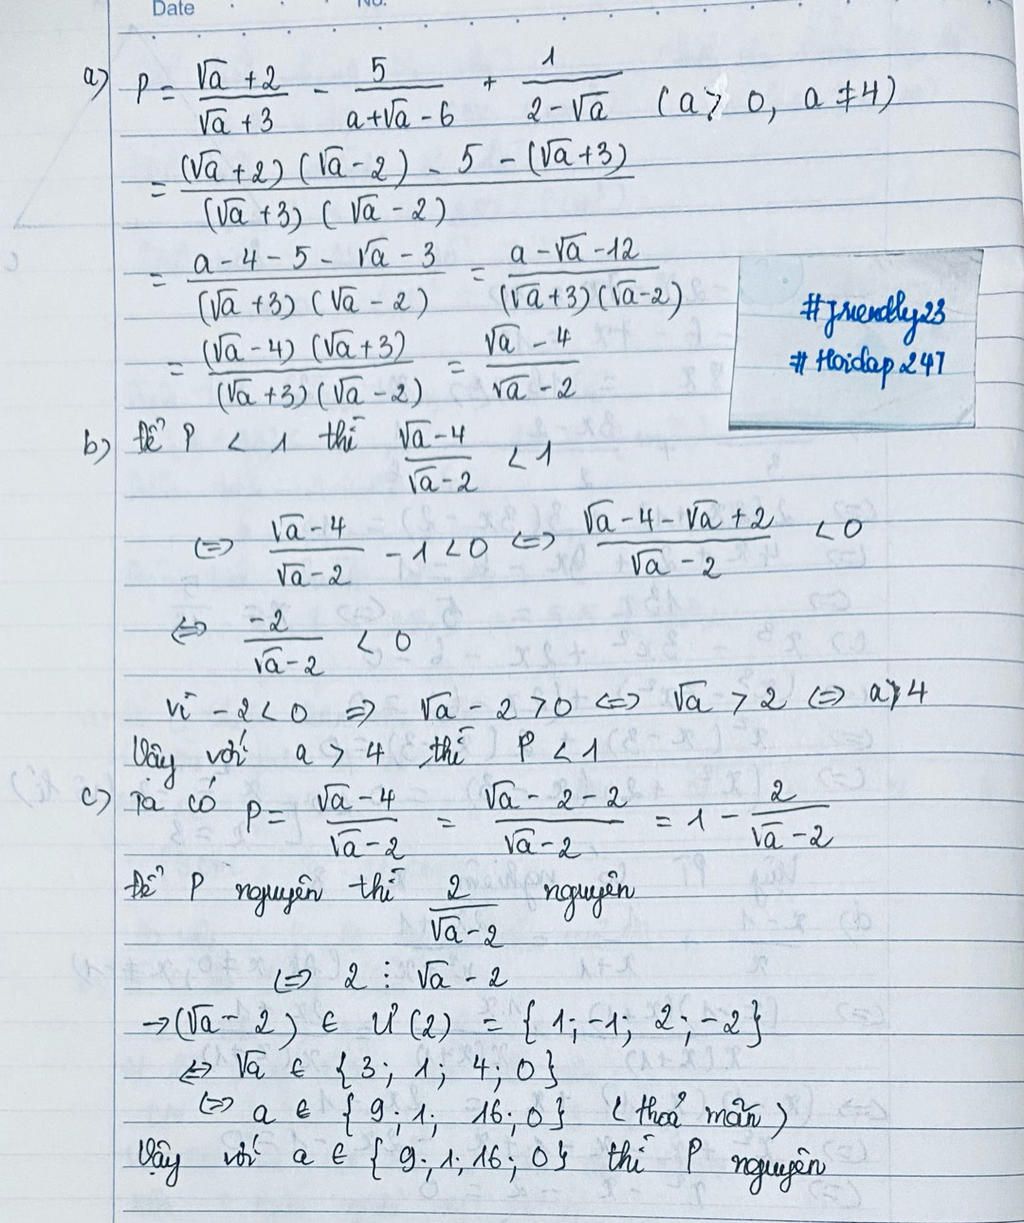 Date No.
a) P = (√a + 2)/(√a + 3) - 5/(a + √a - 6) + 1/(2 - √a) (a > 0, a ≠ 4)
= ((√a + 2)(√a - 2) - 5 - (√a + 3))/((√a + 3)(√a - 2))
= (a - 4 - 5 - √a - 3)/((√a + 3)(√a - 2)) = (a - √a - 12)/((√a + 3)(√a - 2))
#friendly23
#Hoidap247
= ((√a - 4)(√a + 3))/((√a + 3)(√a - 2)) = (√a - 4)/(√a - 2)
b) Để P < 1 thì (√a - 4)/(√a - 2) < 1
⇔ (√a - 4)/(√a - 2) - 1 < 0 ⇔ (√a - 4 - √a + 2)/(√a - 2) < 0
⇔ -2/(√a - 2) < 0
Vì -2 < 0 ⇒ √a - 2 > 0 ⇔ √a > 2 ⇔ a > 4
Vậy với a > 4 thì P < 1
c) Ta có P = (√a - 4)/(√a - 2) = (√a - 2 - 2)/(√a - 2) = 1 - 2/(√a - 2)
Để P nguyên thì 2/(√a - 2) nguyên
⇔ 2 ⋮ √a - 2
→ (√a - 2) ∈ Ư(2) = {1; -1; 2; -2}
⇔ √a ∈ {3; 1; 4; 0}
⇔ a ∈ {9; 1; 16; 0} (thoả mãn)
Vậy với a ∈ {9; 1; 16; 0} thì P nguyên